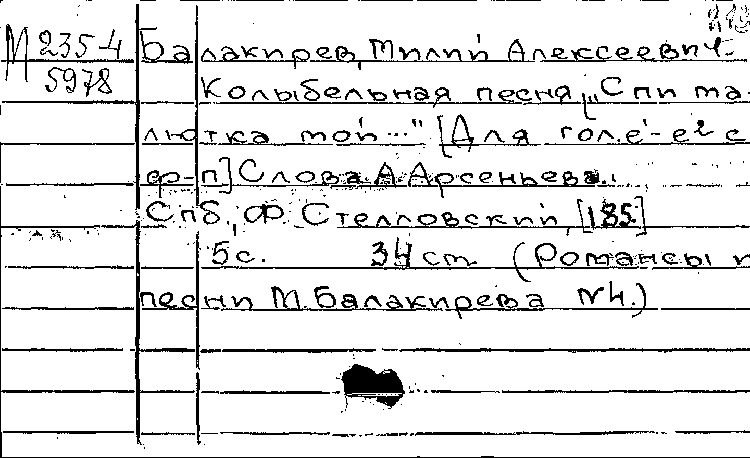 М 235-4
5978
Балакирев, Милий Алексеевич.
Колыбельная песня „Спи ма-
лютка мой..." [Для гол. e'-e² с
ф-п] Слова А. Арсеньева.
Спб., Ф. Стелловский, [185.]
5 с. 34 см (Романсы и
песни М. Балакирева №4.)